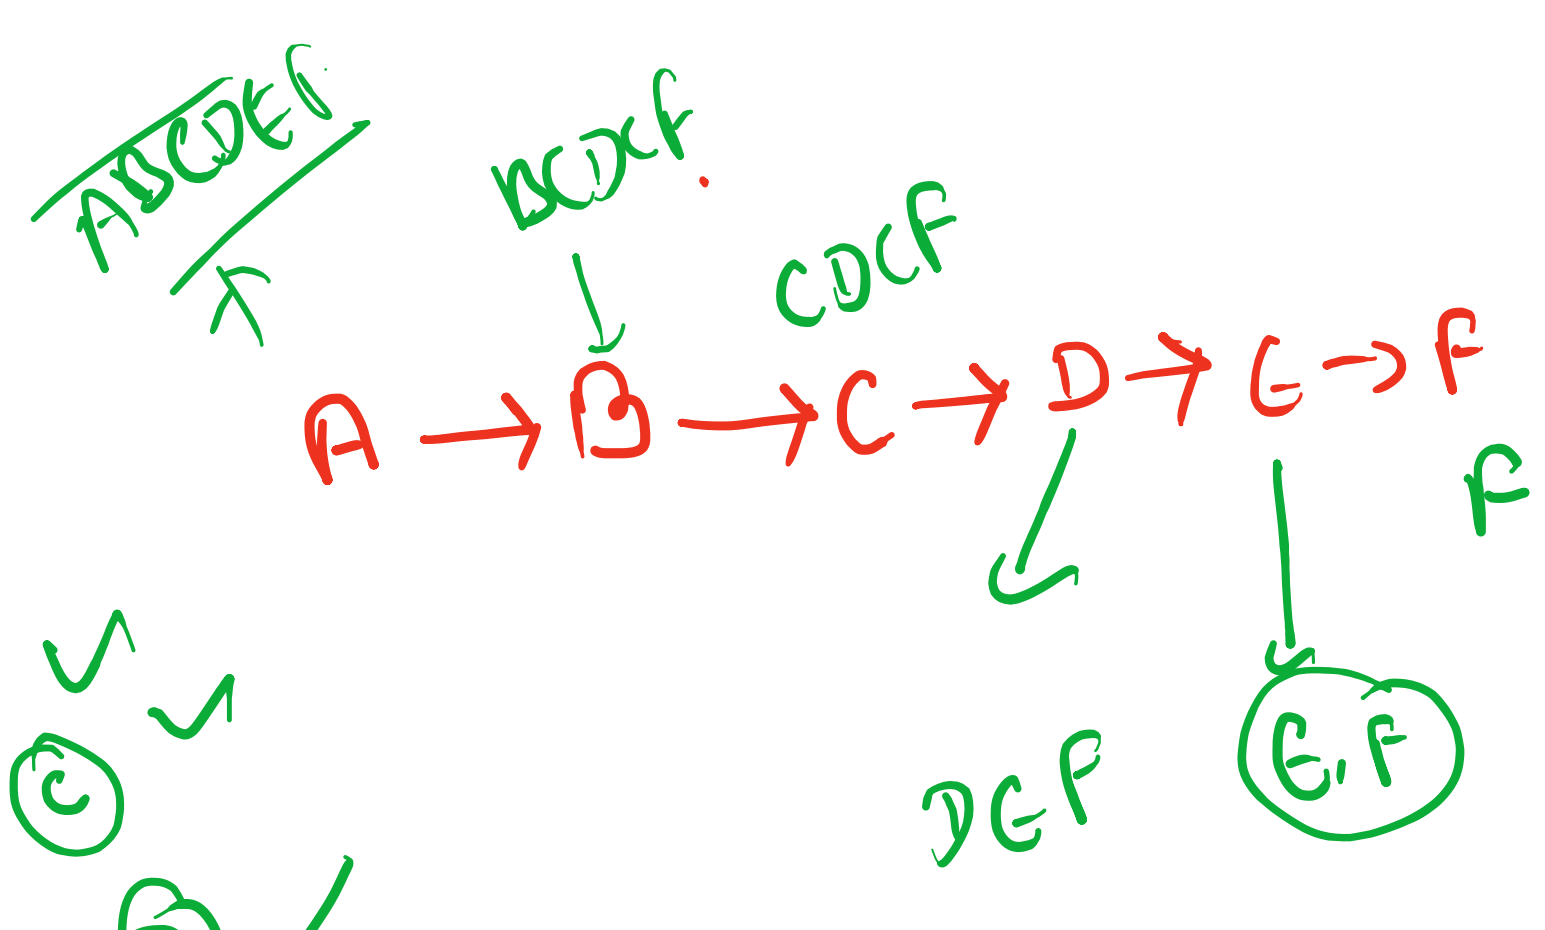 ABCDEF
BCDEF
CDEF
A → B → C → D → E → F
F
C
DEF
E, F